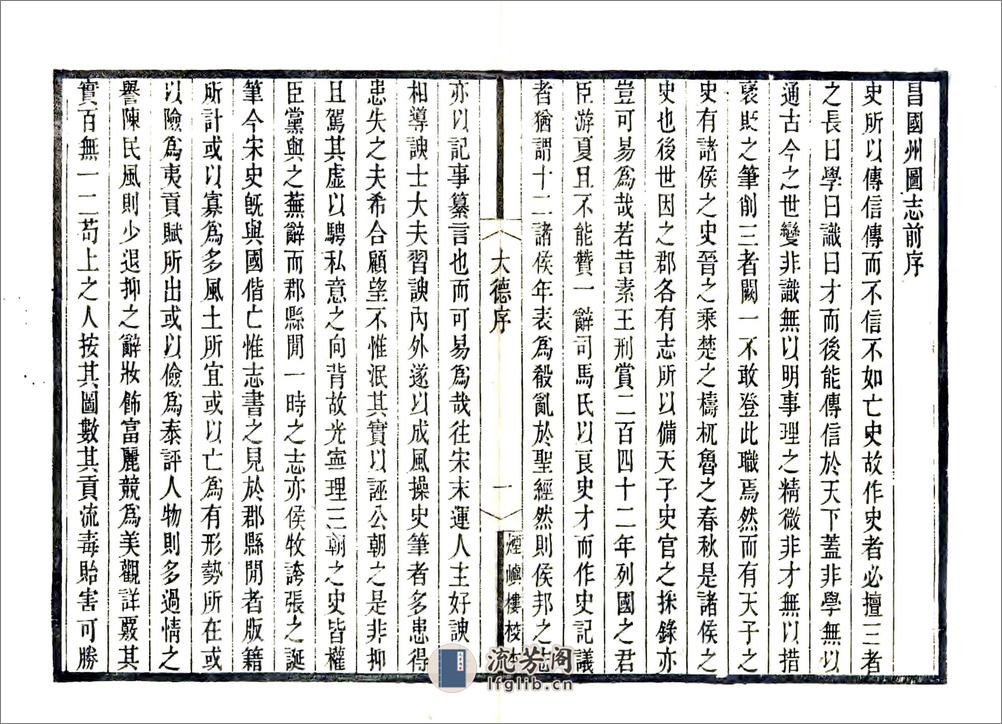 昌國州圖志前序
史所以傳信傳而不信不如亡史故作史者必擅三者
之長曰學曰識曰才而後能傳信於天下蓋非學無以
通古今之世變非識無以明事理之精微非才無以措
褒貶之筆削三者闕一不敢登此職焉然而有天子之
史有諸侯之史晉之乘楚之檮杌魯之春秋是諸侯之
史也後世因之郡各有志所以備天子史官之採錄亦
豈可易爲哉若昔素王刑賞二百四十二年列國之君
臣游夏且不能贊一辭司馬氏以良史才而作史記議
者猶謂十二諸侯年表爲殽亂於聖經然則侯邦之
大德序
一
煙嶼樓校
亦以記事纂言也而可易爲哉往宋末運人主好諛
相導諛士大夫習諛內外遂以成風操史筆者多患得
患失之夫希合顧望不惟泯其實以誣公朝之是非抑
且駕其虛以騁私意之向背故光寧理三朝之史皆權
臣黨與之蕪辭而郡縣閒一時之志亦侯牧誇張之誕
筆今宋史旣與國偕亡惟志書之見於郡縣閒者版籍
所計或以寡爲多風土所宜或以亡爲有形勢所在或
以險爲夷貢賦所出或以儉爲泰評人物則多過情之
譽陳民風則少退抑之辭妝飾富麗競爲美觀詳覈其
實百無一二苟上之人按其圖數其貢流毒貽害可勝
流芳阁
lfglib.cn